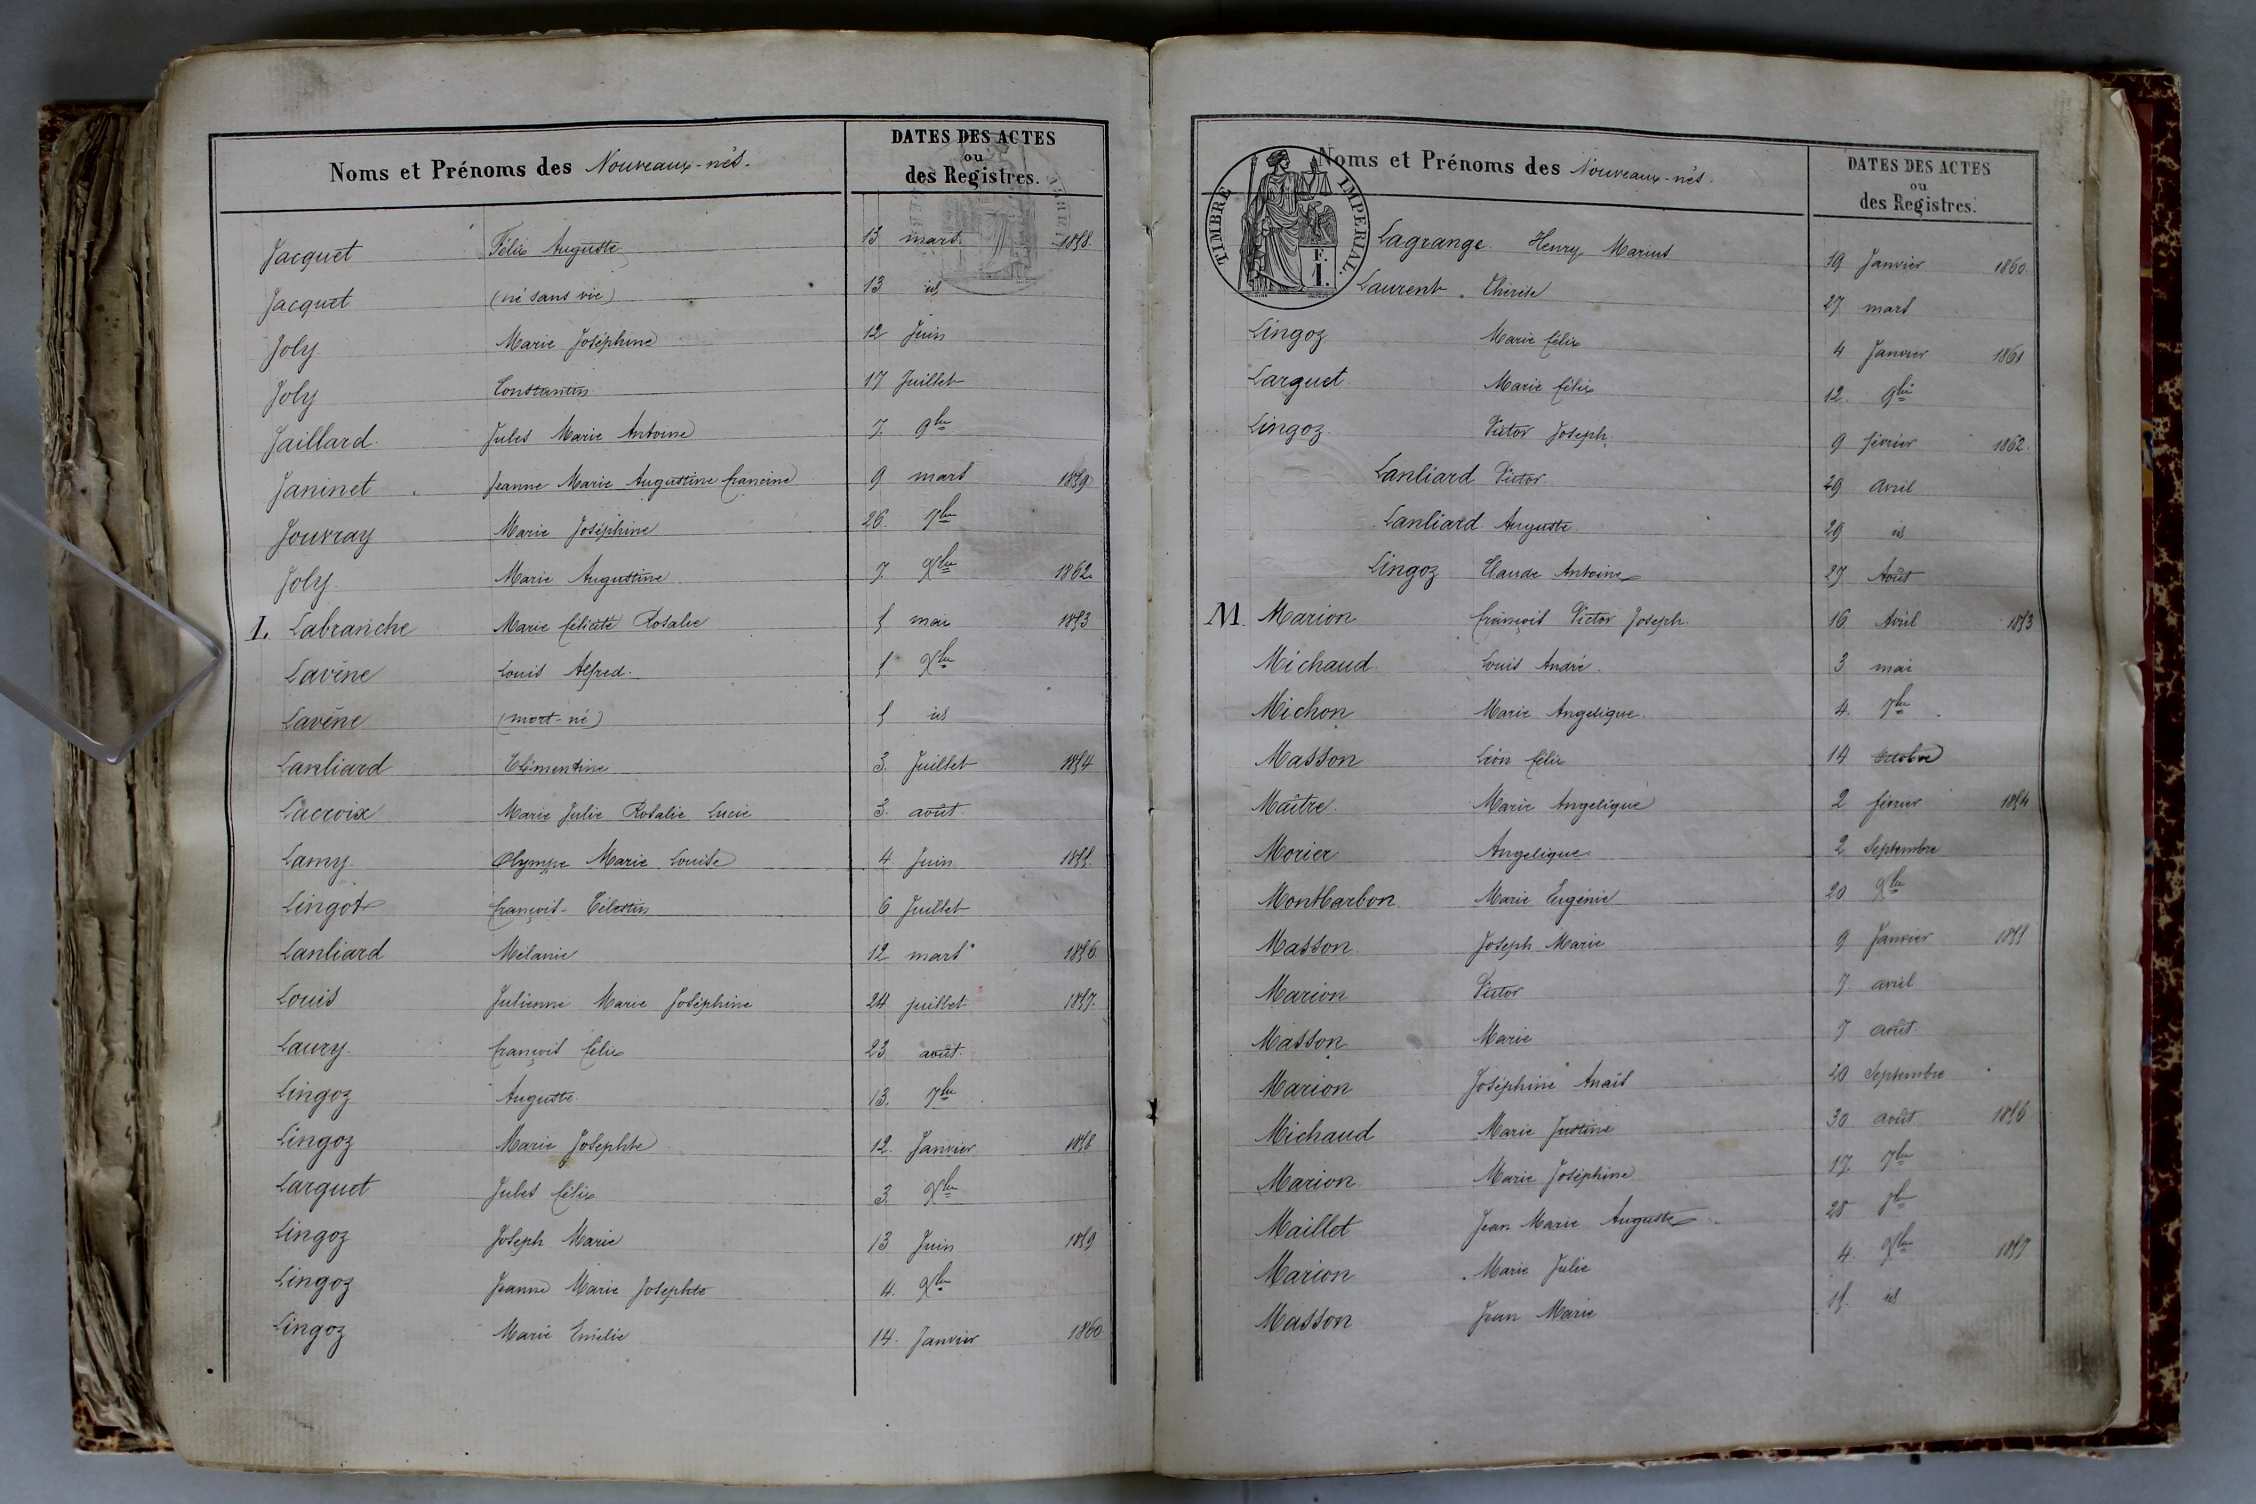 Noms et Prénoms des Nouveaux-nés.
DATES DES ACTES
ou
des Registres.
Jacquet Félix Auguste 13 mars 1858
Jacquet (né sans vie) 13 id
Joly Marie Joséphine 12 Juin
Joly Constantin 17 Juillet
Jaillard Jules Marie Antoine 7 9bre
Janinet Jeanne Marie Augustine francine 9 mars 1859
Jouvray Marie Joséphine 26 7bre
Joly Marie Augustine 7 Xbre 1862
L. Labranche Marie félicité Rosalie 5 mai 1853
Lavêne Louis Alfred. 5 Xbre
Lavêne (mort-né) 5 id
Lanliard Clémentine 3. Juillet 1854
Lacroix Marie Julie Rosalie Lucie 3. août.
Lamy Olympe Marie Louise 4 Juin 1855.
Lingot françois-Célestin 6 Juillet
Lanliard Mélanie 12 mars 1856
Louis Julienne Marie Joséphine 24 juillet 1857.
Laury. françois félix 23 août.
Lingoz Auguste. 13. 7bre
Lingoz Marie Josephte 12. Janvier 1858
Larguet Jules félix 3. Xbre
Lingoz Joseph Marie 13 Juin 1859
Lingoz Jeanne Marie Josephte 4. Xbre
Lingoz Marie Emélie 14. Janvier 1860
Noms et Prénoms des Nouveaux-nés.
DATES DES ACTES
ou
des Registres.
TIMBRE IMPERIAL.
F.
1.
Lagrange. Henry Marius 19 Janvier 1860
Laurent. Thérèse 27 mars
Lingoz Marie félix 4 Janvier 1861
Larguet Marie félix 12. 9bre
Lingoz Victor Joseph 9 février 1862.
Lanliard Victor 29 Avril
Lanliard Auguste 29 id
Lingoz Claude Antoine 27 Août
M. Marion françois Victor Joseph 16 Avril 1853
Michaud Louis André. 3 mai
Michon Marie Angelique. 4. 7bre
Masson Léon félix 14 Octobre
Maître. Marie Angelique 2 février 1854
Morier Angelique 2 Septembre
Montbarbon Marie Eugénie 20 Xbre
Masson Joseph Marie 9 Janvier 1855
Marion Victor 7 avril
Masson Marie 7 août.
Marion Joséphine Anaïs 20 Septembre
Michaud Marie Justine 30 août 1856
Marion Marie Joséphine 17 7bre
Maillet Jean Marie Auguste 28
Marion Marie Julie 4. Xbre 1857
Masson Jean Marie 15. id